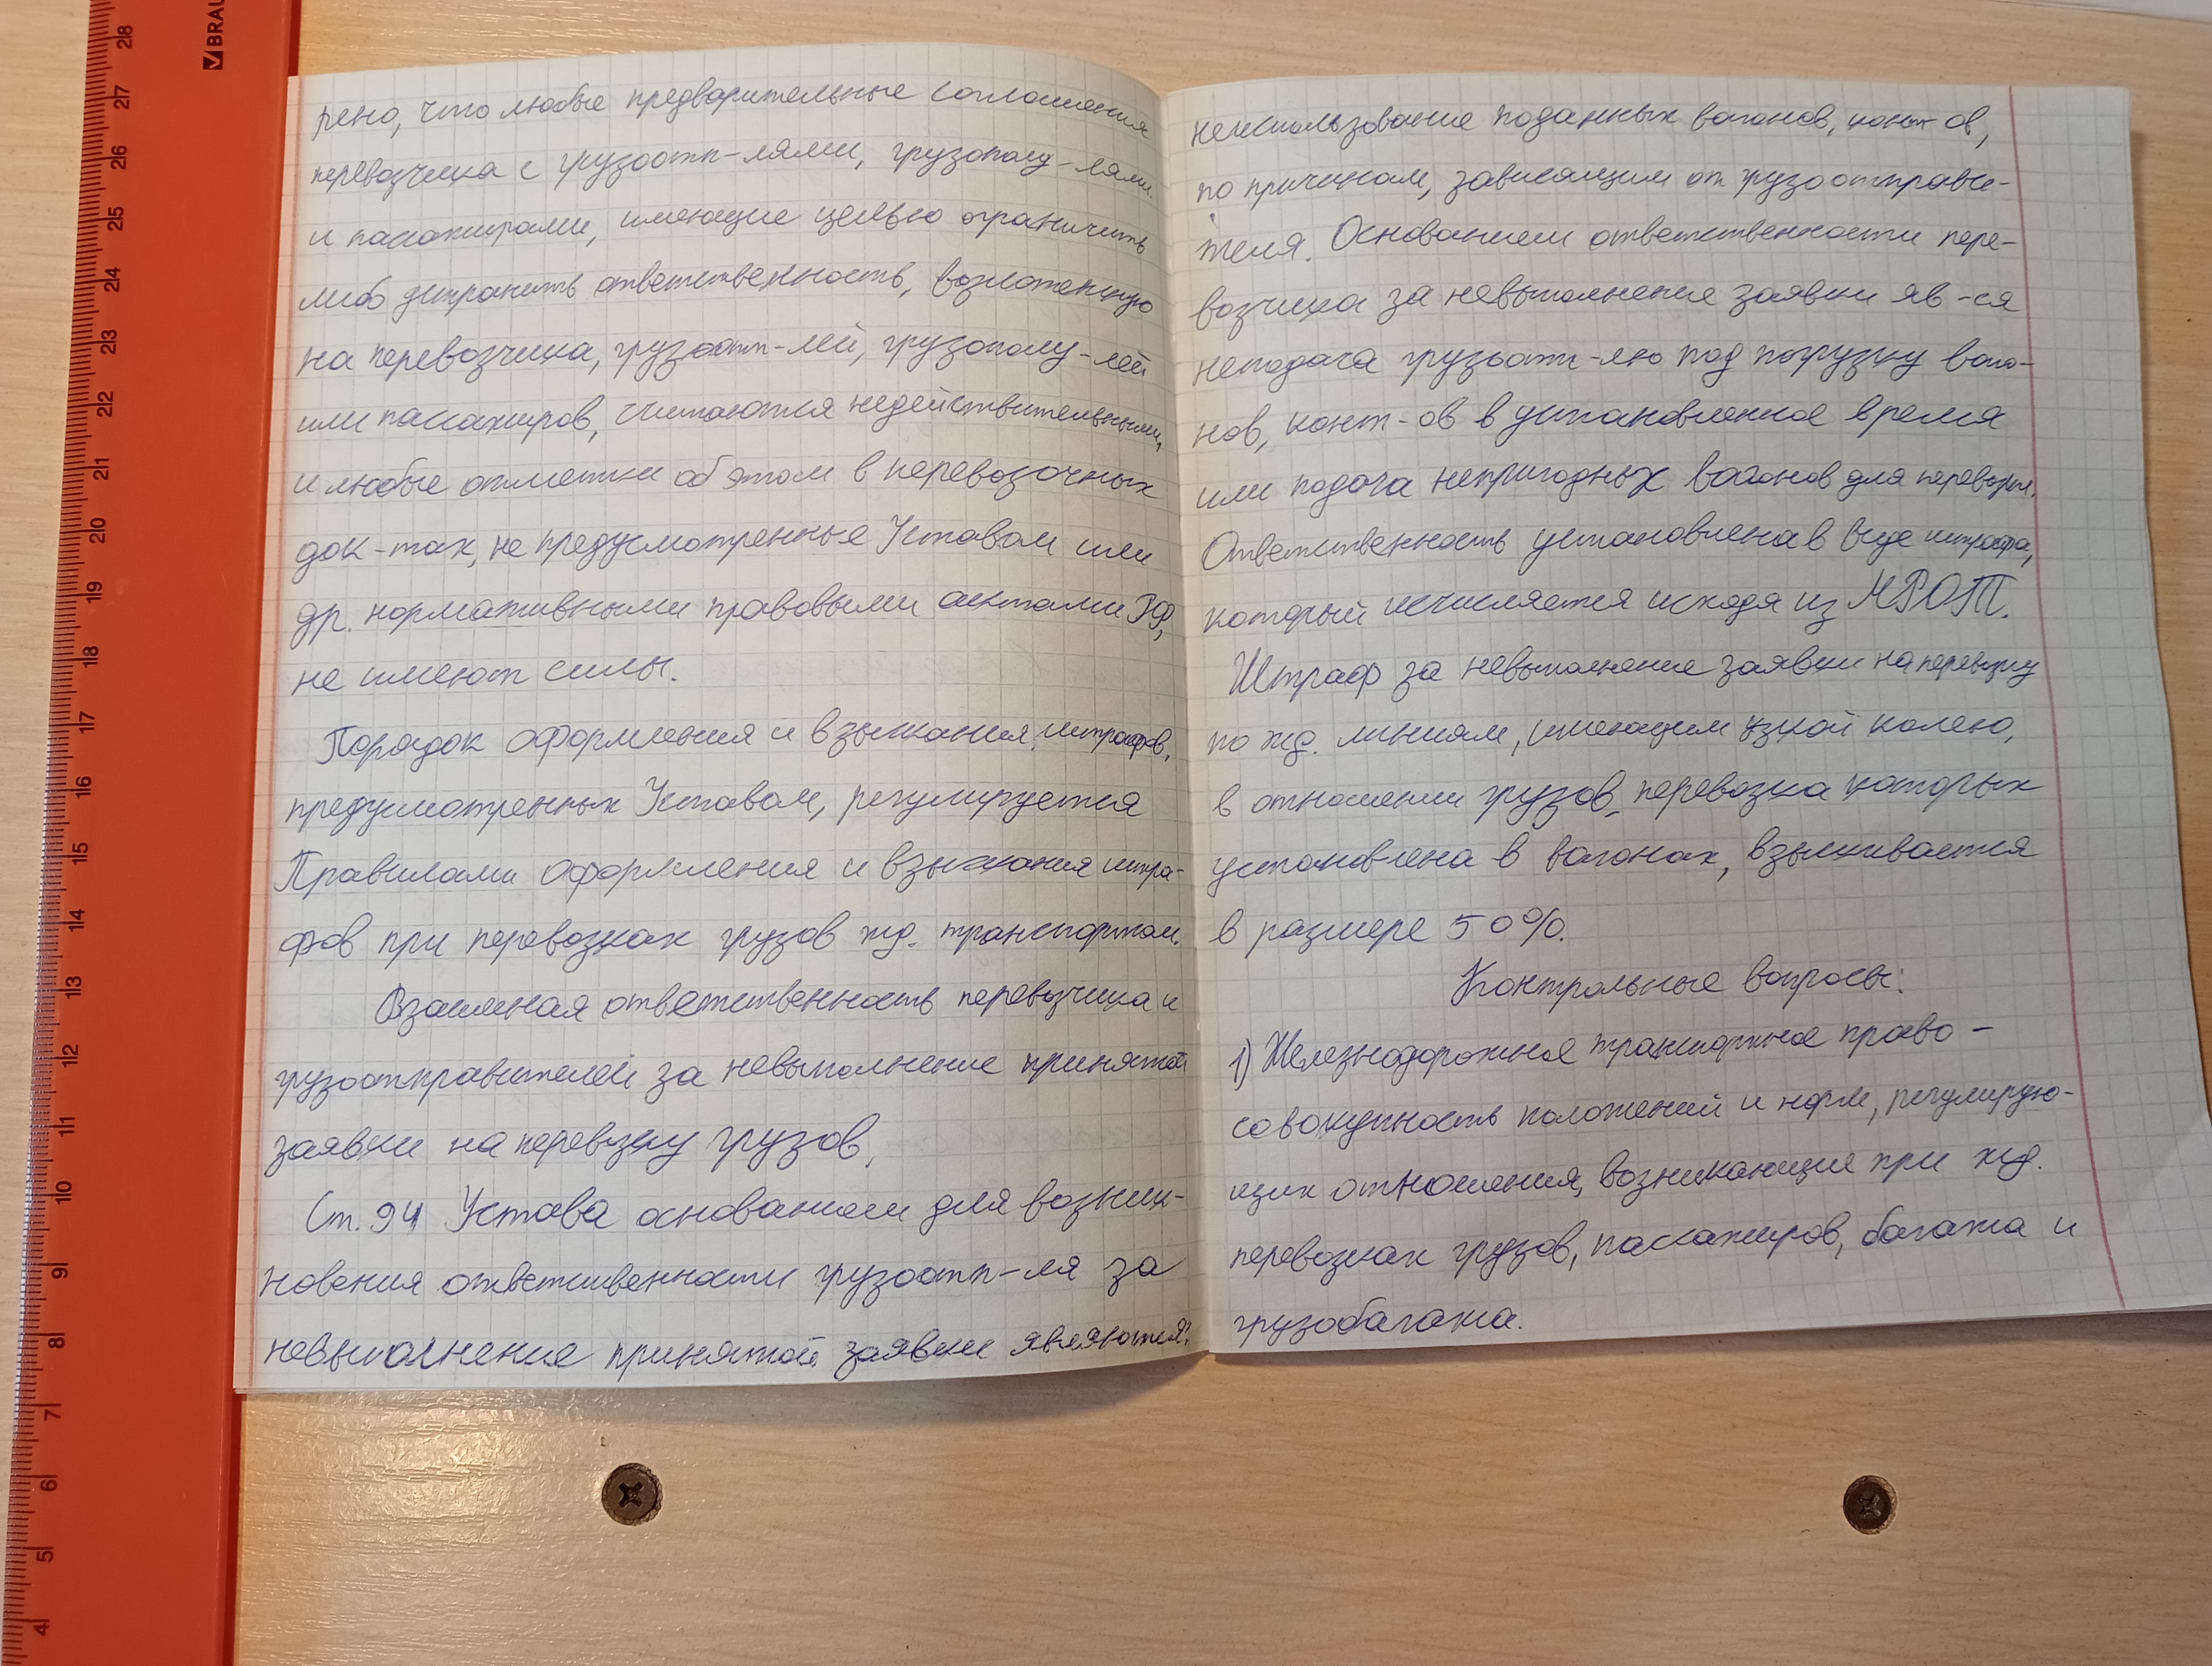 BRAU
28
27
26
25
24
23
22
21
20
19
18
17
16
15
14
13
12
11
10
9
8
7
6
5
4
рено, что любые предварительные соглашения
перевозчика с грузоотп-лями, грузополу-лями
и пассажирами, имеющие целью ограничить
либо устранить ответственность, возложенную
на перевозчика, грузоотп-лей, грузополу-лей
или пассажиров, считаются недействительными,
и любые отметки об этом в перевозочных
док-тах, не предусмотренные Уставом или
др. нормативными правовыми актами РФ,
не имеют силы.
Порядок оформления и взыскания штрафов,
предусмотренных Уставом, регулируется
Правилами оформления и взыскания штра-
фов при перевозках грузов жд. транспортом.
Взаимная ответственность перевозчика и
грузоотправителей за невыполнение принятой
заявки на перевозку грузов.
Ст. 94 Устава основанием для возник-
новения ответственности грузоотп-ля за
невыполнение принятой заявки являются:
неиспользование поданных вагонов, конт-ов,
по причинам, зависящим от грузоотправи-
теля. Основанием ответственности пере-
возчика за невыполнение заявки яв-ся
неподача грузоотп-лю под погрузку ваго-
нов, конт-ов в установленное время
или подача непригодных вагонов для перевозки.
Ответственность установлена в виде штрафа,
который исчисляется исходя из МРОТ.
Штраф за невыполнение заявки на перевозку
по жд. линиям, имеющим узкой колею,
в отношении грузов, перевозка которых
установлена в вагонах, взыскивается
в размере 50%.
Контрольные вопросы:
1) Железнодорожное транспортное право -
совокупность положений и норм, регулирую-
щих отношения, возникающие при жд.
перевозках грузов, пассажиров, багажа и
грузобагажа.